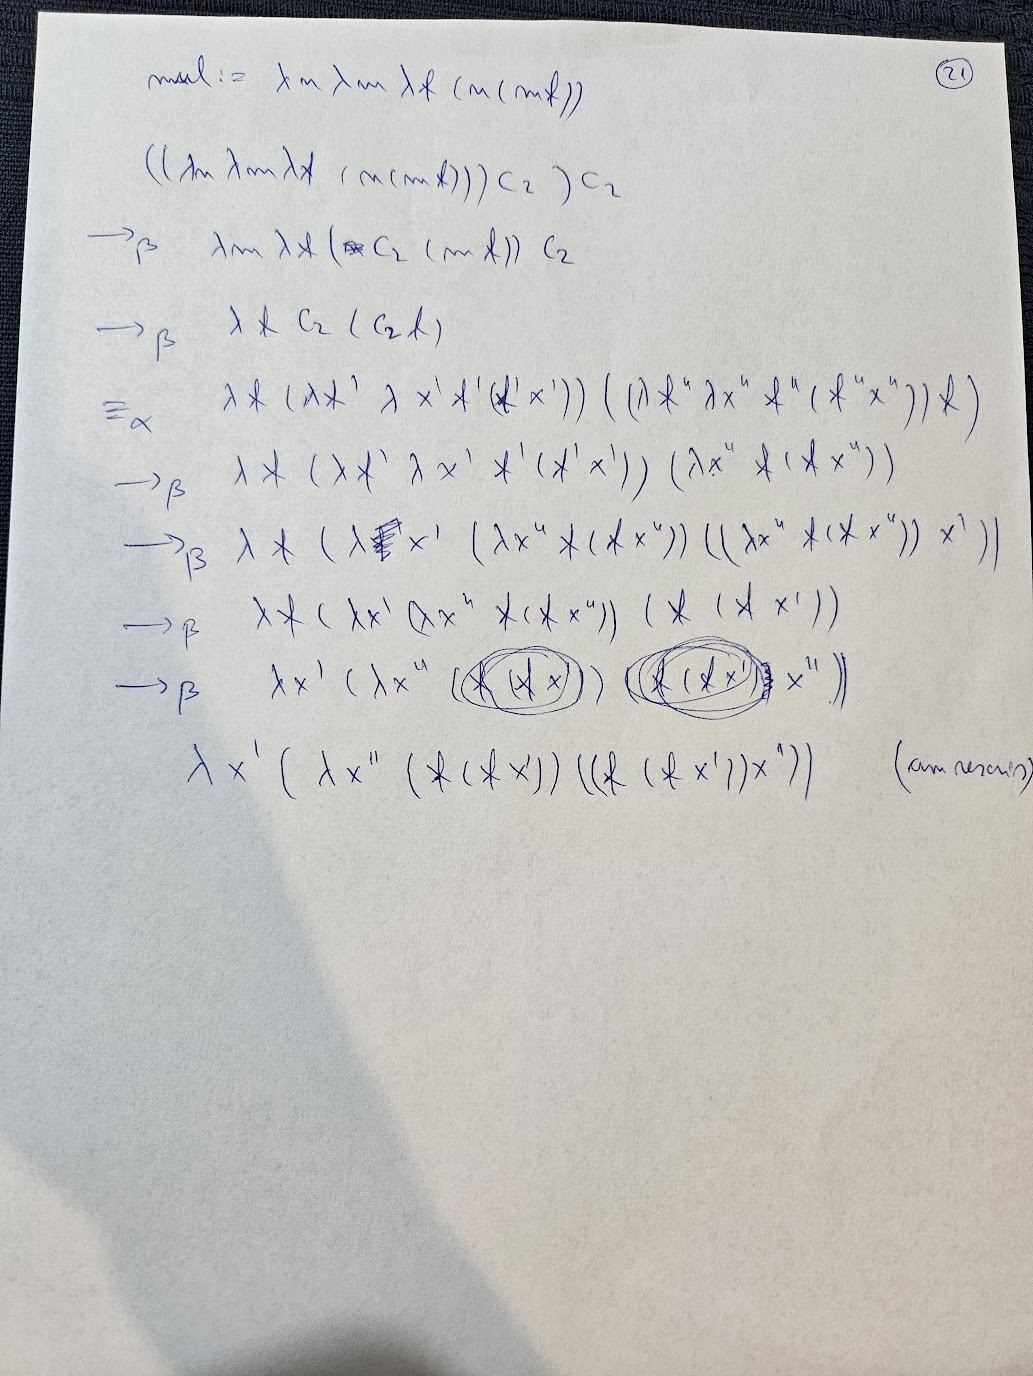 21
mul := λn λm λf (n(mf))
((λn λmλf (n(mf))) C₂ ) C₂
→β λm λf (C₂ (mf)) C₂
→β λf C₂ (C₂f)
≡α λf (λf' λx' f'(f'x')) ((λf" λx" f" (f"x")) f)
→β λf (λf' λx' f'(f'x')) (λx" f(fx"))
→β λf (λx' (λx" f(fx")) ((λx" f(fx")) x'))
→β λf (λx' (λx" f(fx")) (f (f x'))
→β λx' (λx" (f (f x')) (f (f x') x"))
λx' ( λx" (f(f x')) ((f (f x'))x"))    (am rescris)